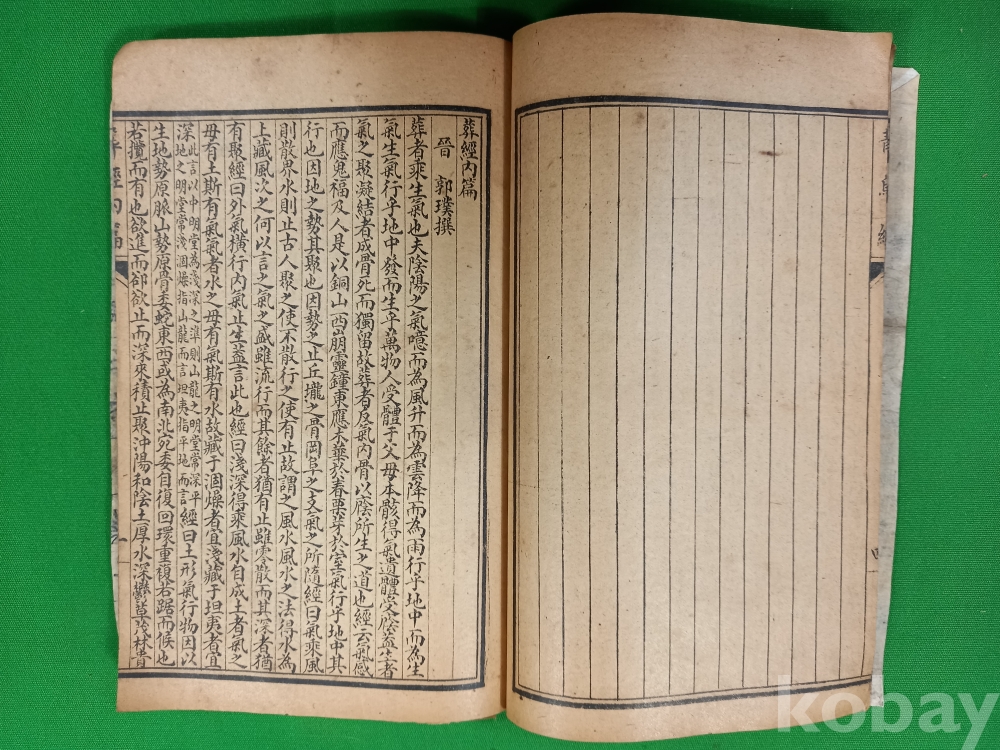 靑烏經
四
葬經內篇
晉 郭璞撰
葬者乘生氣也夫陰陽之氣噫而為風升而為雲降而為雨行乎地中而為生
氣生氣行乎地中發而生乎萬物人受體于父母本骸得氣遺體受廕蓋生者
氣之聚凝結者成骨死而獨留故葬者反氣內骨以廕所生之道也經云氣感
而應鬼福及人是以銅山西崩靈鐘東應木華於春栗芽於室氣行乎地中其
行也因地之勢其聚也因勢之止丘壠之骨岡阜之支氣之所隨經曰氣乘風
則散界水則止古人聚之使不散行之使有止故謂之風水風水之法得水為
上藏風次之何以言之氣之盛雖流行而其餘者猶有止雖零散而其深者猶
有聚經曰外氣橫行內氣止生蓋言此也經曰淺深得乘風水自成土者氣之
母有土斯有氣氣者水之母有氣斯有水故藏于涸燥者宜淺藏于坦夷者宜
深此言以中明堂為淺深之準則山龍之明堂常深平地之明堂常淺涸燥指山龍而言坦夷指平地而言經曰土形氣行物因以
生地勢原脈山勢原骨委蛇東西或為南北宛委自復回環重複若踞而候也
若攬而有也欲進而卻欲止而深來積止聚沖陽和陰土厚水深鬱草茂林貴
葬經內篇
一
kobay